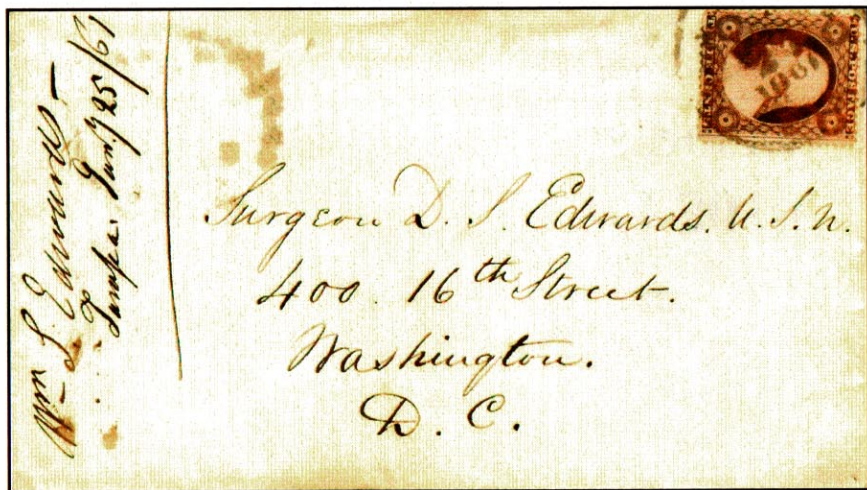 Wm S. Edwards –
Tampa. Jany 25/61
Surgeon D. S. Edwards. U. S. N.
400. 16th Street.
Washington.
D. C.
1861